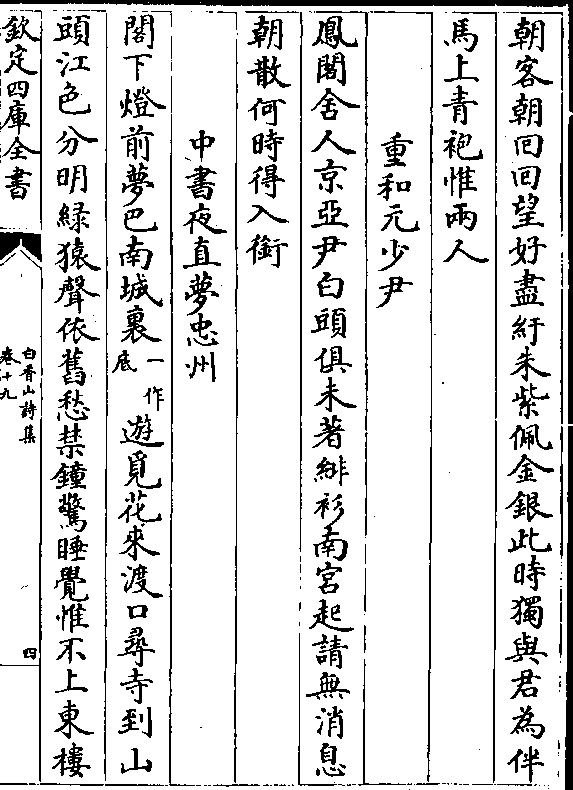 朝客朝回回望好盡紆朱紫佩金銀此時獨與君為伴
馬上青袍惟兩人
重和元少尹
鳳閣舍人京亞尹白頭俱未著緋衫南宮起請無消息
朝散何時得入銜
中書夜直夢忠州
閣下燈前夢巴南城裏一作底遊覓花來渡口尋寺到山
頭江色分明綠猿聲依舊愁禁鐘驚睡覺惟不上東樓
欽定四庫全書
白香山詩集
卷十九
四